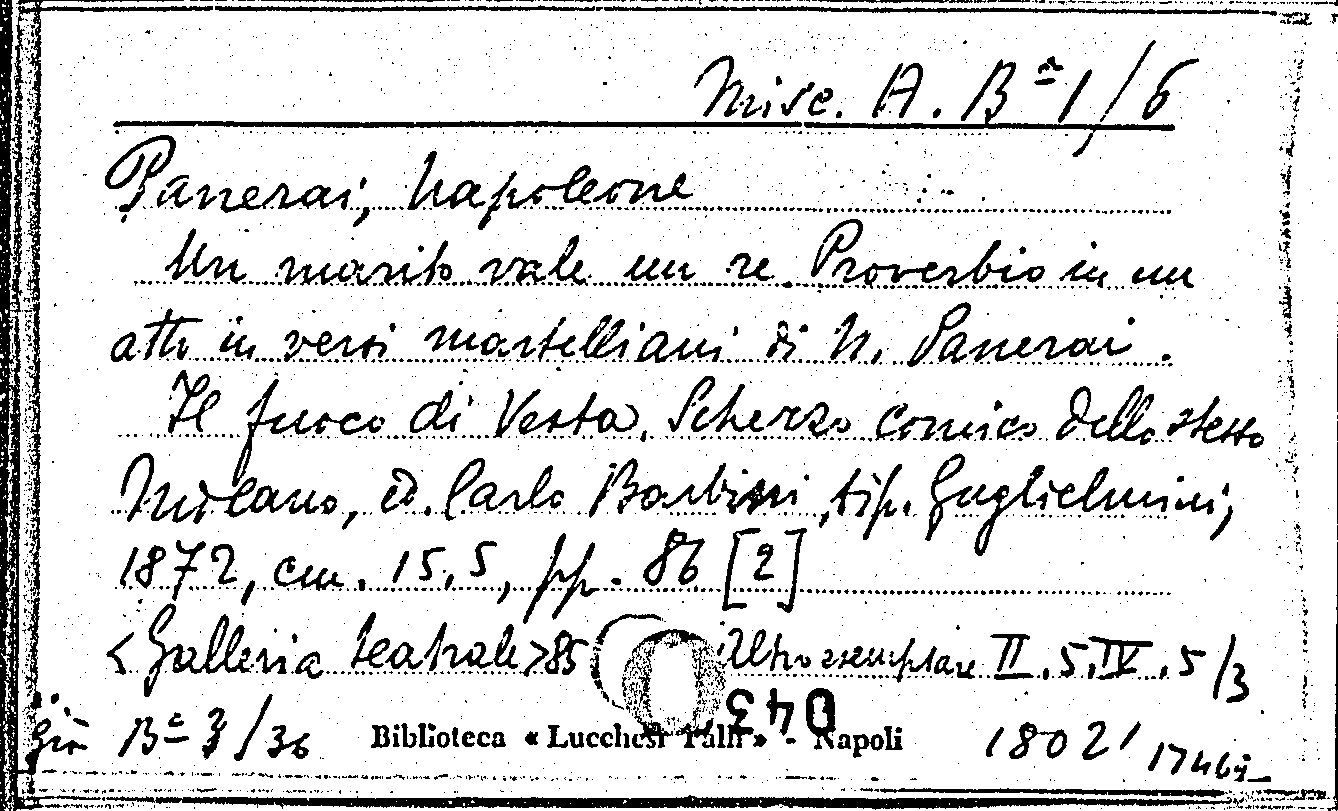 Misc. A. Bª 1/6
Panerai, Napoleone
Un marito vale un re. Proverbio in un
atto in versi martelliani di N. Panerai.
Il fuoco di Vesta. Scherzo comico dello stesso
Milano, ed. Carlo Barbini, tip. Guglielmini,
1872, cm. 15,5, pp. 86 [2]
<Galleria teatrale> 85 Altro esemplare II.5.IV.5/3
043
già Bª 3/36 Biblioteca « Lucchesi Palli » - Napoli 1802'